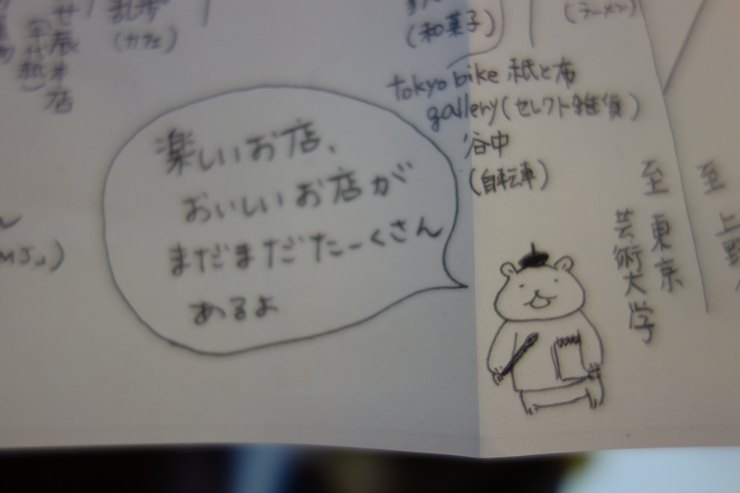 乱歩
(カフェ)
せ辰本店
(千代紙)
(和菓子)
(ラーメン)
tokyobike 紙と布
gallery(セレクト雑貨)
谷中
(自転車)
楽しいお店、
おいしいお店が
まだまだたーくさん
あるよ
至 東京
芸術大学
至 上野